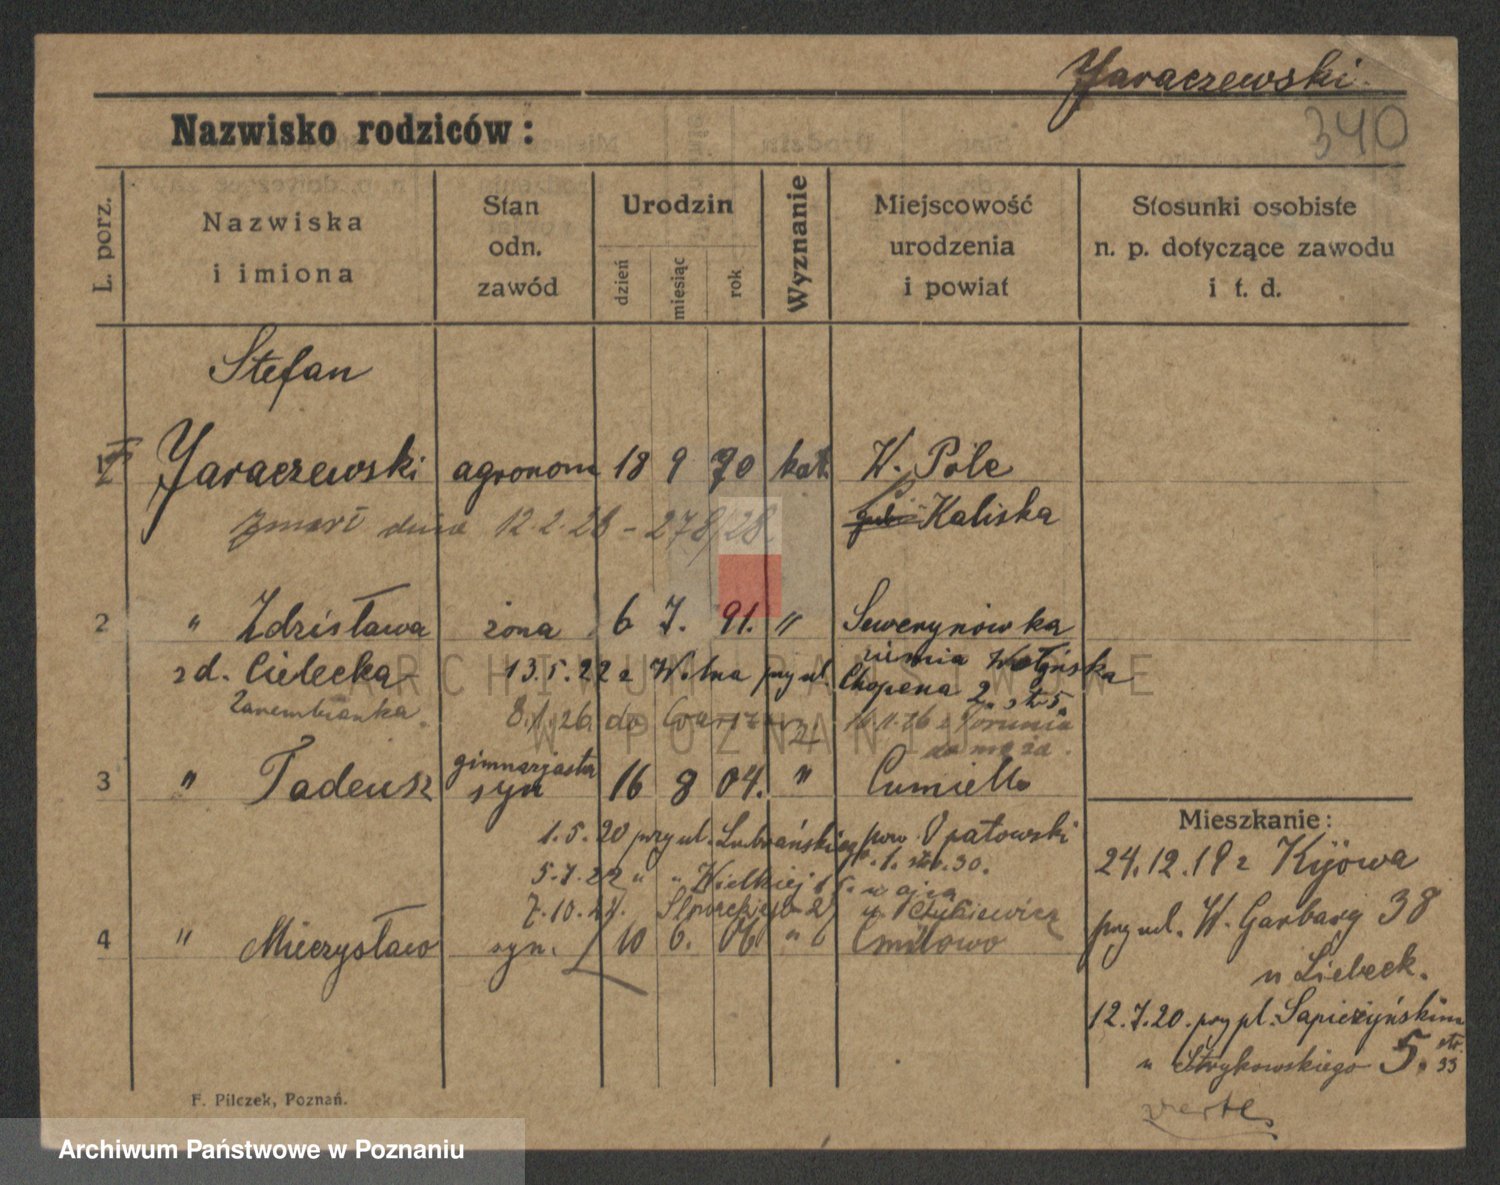 Jaraczewski
340
Nazwisko rodziców:
L. porz.
Nazwiska
i imiona
Stan
odn.
zawód
Urodzin
dzień
miesiąc
rok
Wyznanie
Miejscowość
urodzenia
i powiat
Stosunki osobiste
n. p. dotyczące zawodu
i t. d.
Stefan
1 Jaraczewski agronom 18 9 70 kat. W. Pole
Kaliska
zmarł dnia 12.2.28 - 278/28
2 " Zdzisława żona 6 7. 91. " Sewerynówka
ziemia Wołyńska
z d. Cielecka 13.5.22 z Wilna przy ul. Chopena 2. str. 5.
Zarembianka. 8.1.26 do
z Torunia
do męża.
3 " Tadeusz gimnazjasta
syn 16 8 04. " Cumiello
pow. Opatowski
1.5.20 przy ul. Lubrańskiego 1. str. 30.
5.7.22 " " Wielkiej
7.10.24. Słowackiego
4 " Mieczysław syn. 10 6. 06. "
Mieszkanie:
24.12.19 z Kijowa
przy ul. W. Garbary 38
u Liebeck.
12.7.20. przy pl. Sapieżyńskim
u Strykowskiego 5. str. 33
verte
F. Pilczek, Poznań.
ARCHIWUM PAŃSTWOWE
W POZNANIU
Archiwum Państwowe w Poznaniu